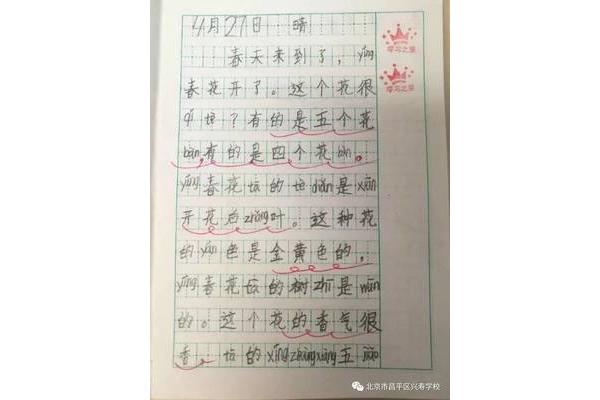 4月27日 晴
春天来到了，yíng
春花开了。这个花很
qí 怪？有的是五个花
bàn，有的是四个花bàn。
yíng春花坛的tè diǎn是xiān
开花后zhǎng叶。这种花
的yán色是金黄色的，
yíng春花坛的树zhī是wān
的。这个花的香气很
香。坛的xíng zhuàng xiàng五
学习之星
学习之星
北京市昌平区兴寿学校